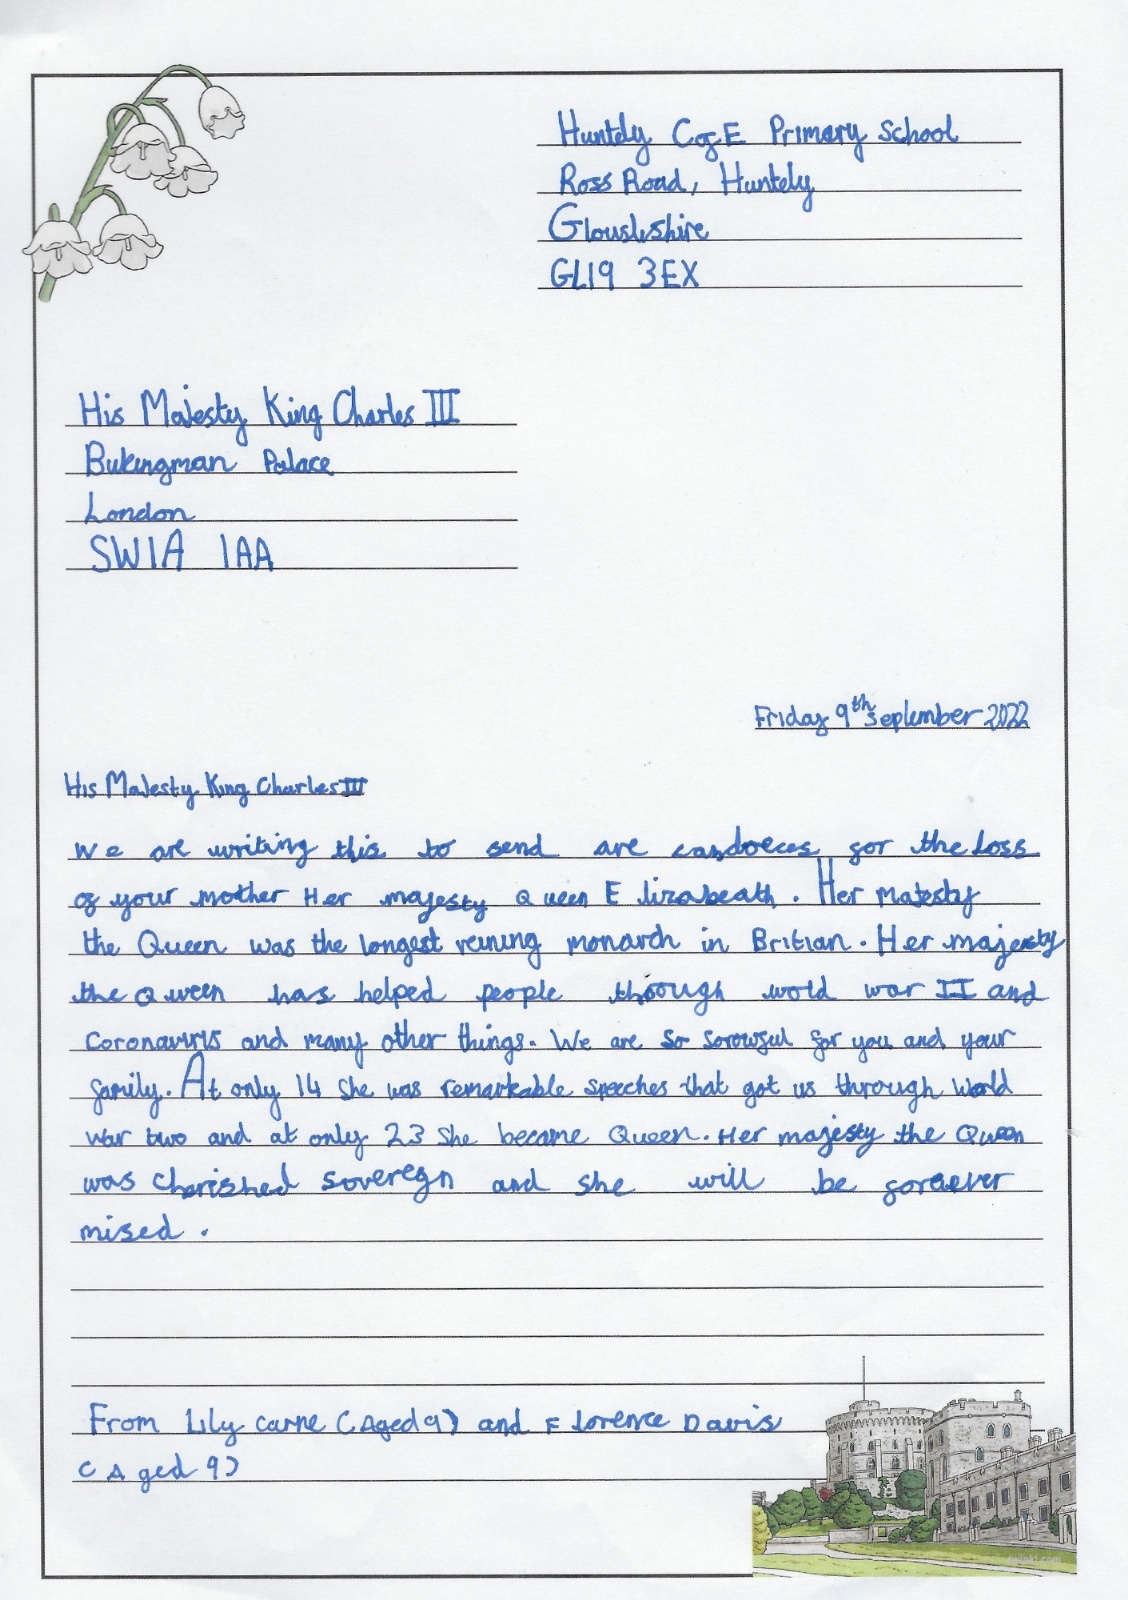 Huntely CofE Primary School
Ross Road, Huntely
Glousleshire
GL19 3EX
His Majesty King Charles III
Bukingman Palace
London
SW1A 1AA
Friday 9th September 2022
His Majesty King Charles III
We are writing this to send are candoeces for the Loss
of your mother Her majesty Queen Elizabeath. Her Majesty
the Queen was the longest reining monarch in Britian. Her majersty
the Queen has helped people through wold war II and
Coronavirus and many other things. We are so sorowful for you and your
family. At only 14 she was remarkable speeches that got us through World
War two and at only 23 she became Queen. Her majesty the Queen
was cherished soveregn and she will be foraever
mised.
From Lily Carne (Aged 9) and Florence Davis
(Aged 9)